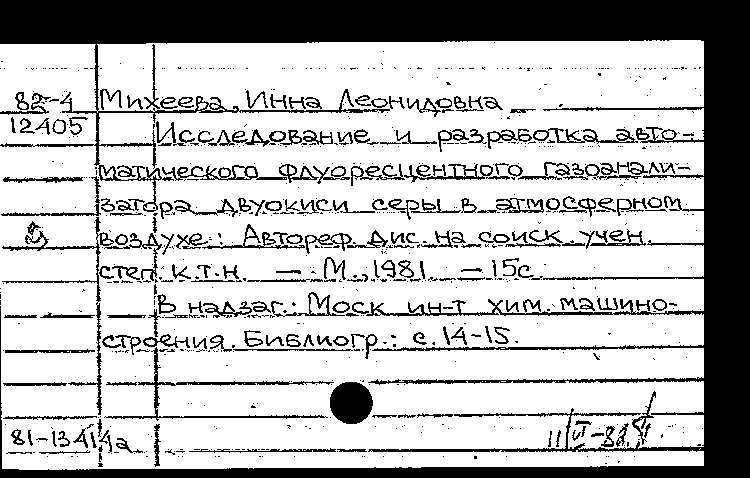 82-4 Михеева, Инна Леонидовна
12405 Исследование и разработка авто-
матического флуоресцентного газоанали-
затора двуокиси серы в атмосферном
воздухе.: Автореф. дис. на соиск. учен.
степ. к.т.н. — М., 1981. — 15с.
В надзаг.: Моск ин-т хим. машино-
строения. Библиогр.: с. 14-15.
81-13414а 11/VI-82